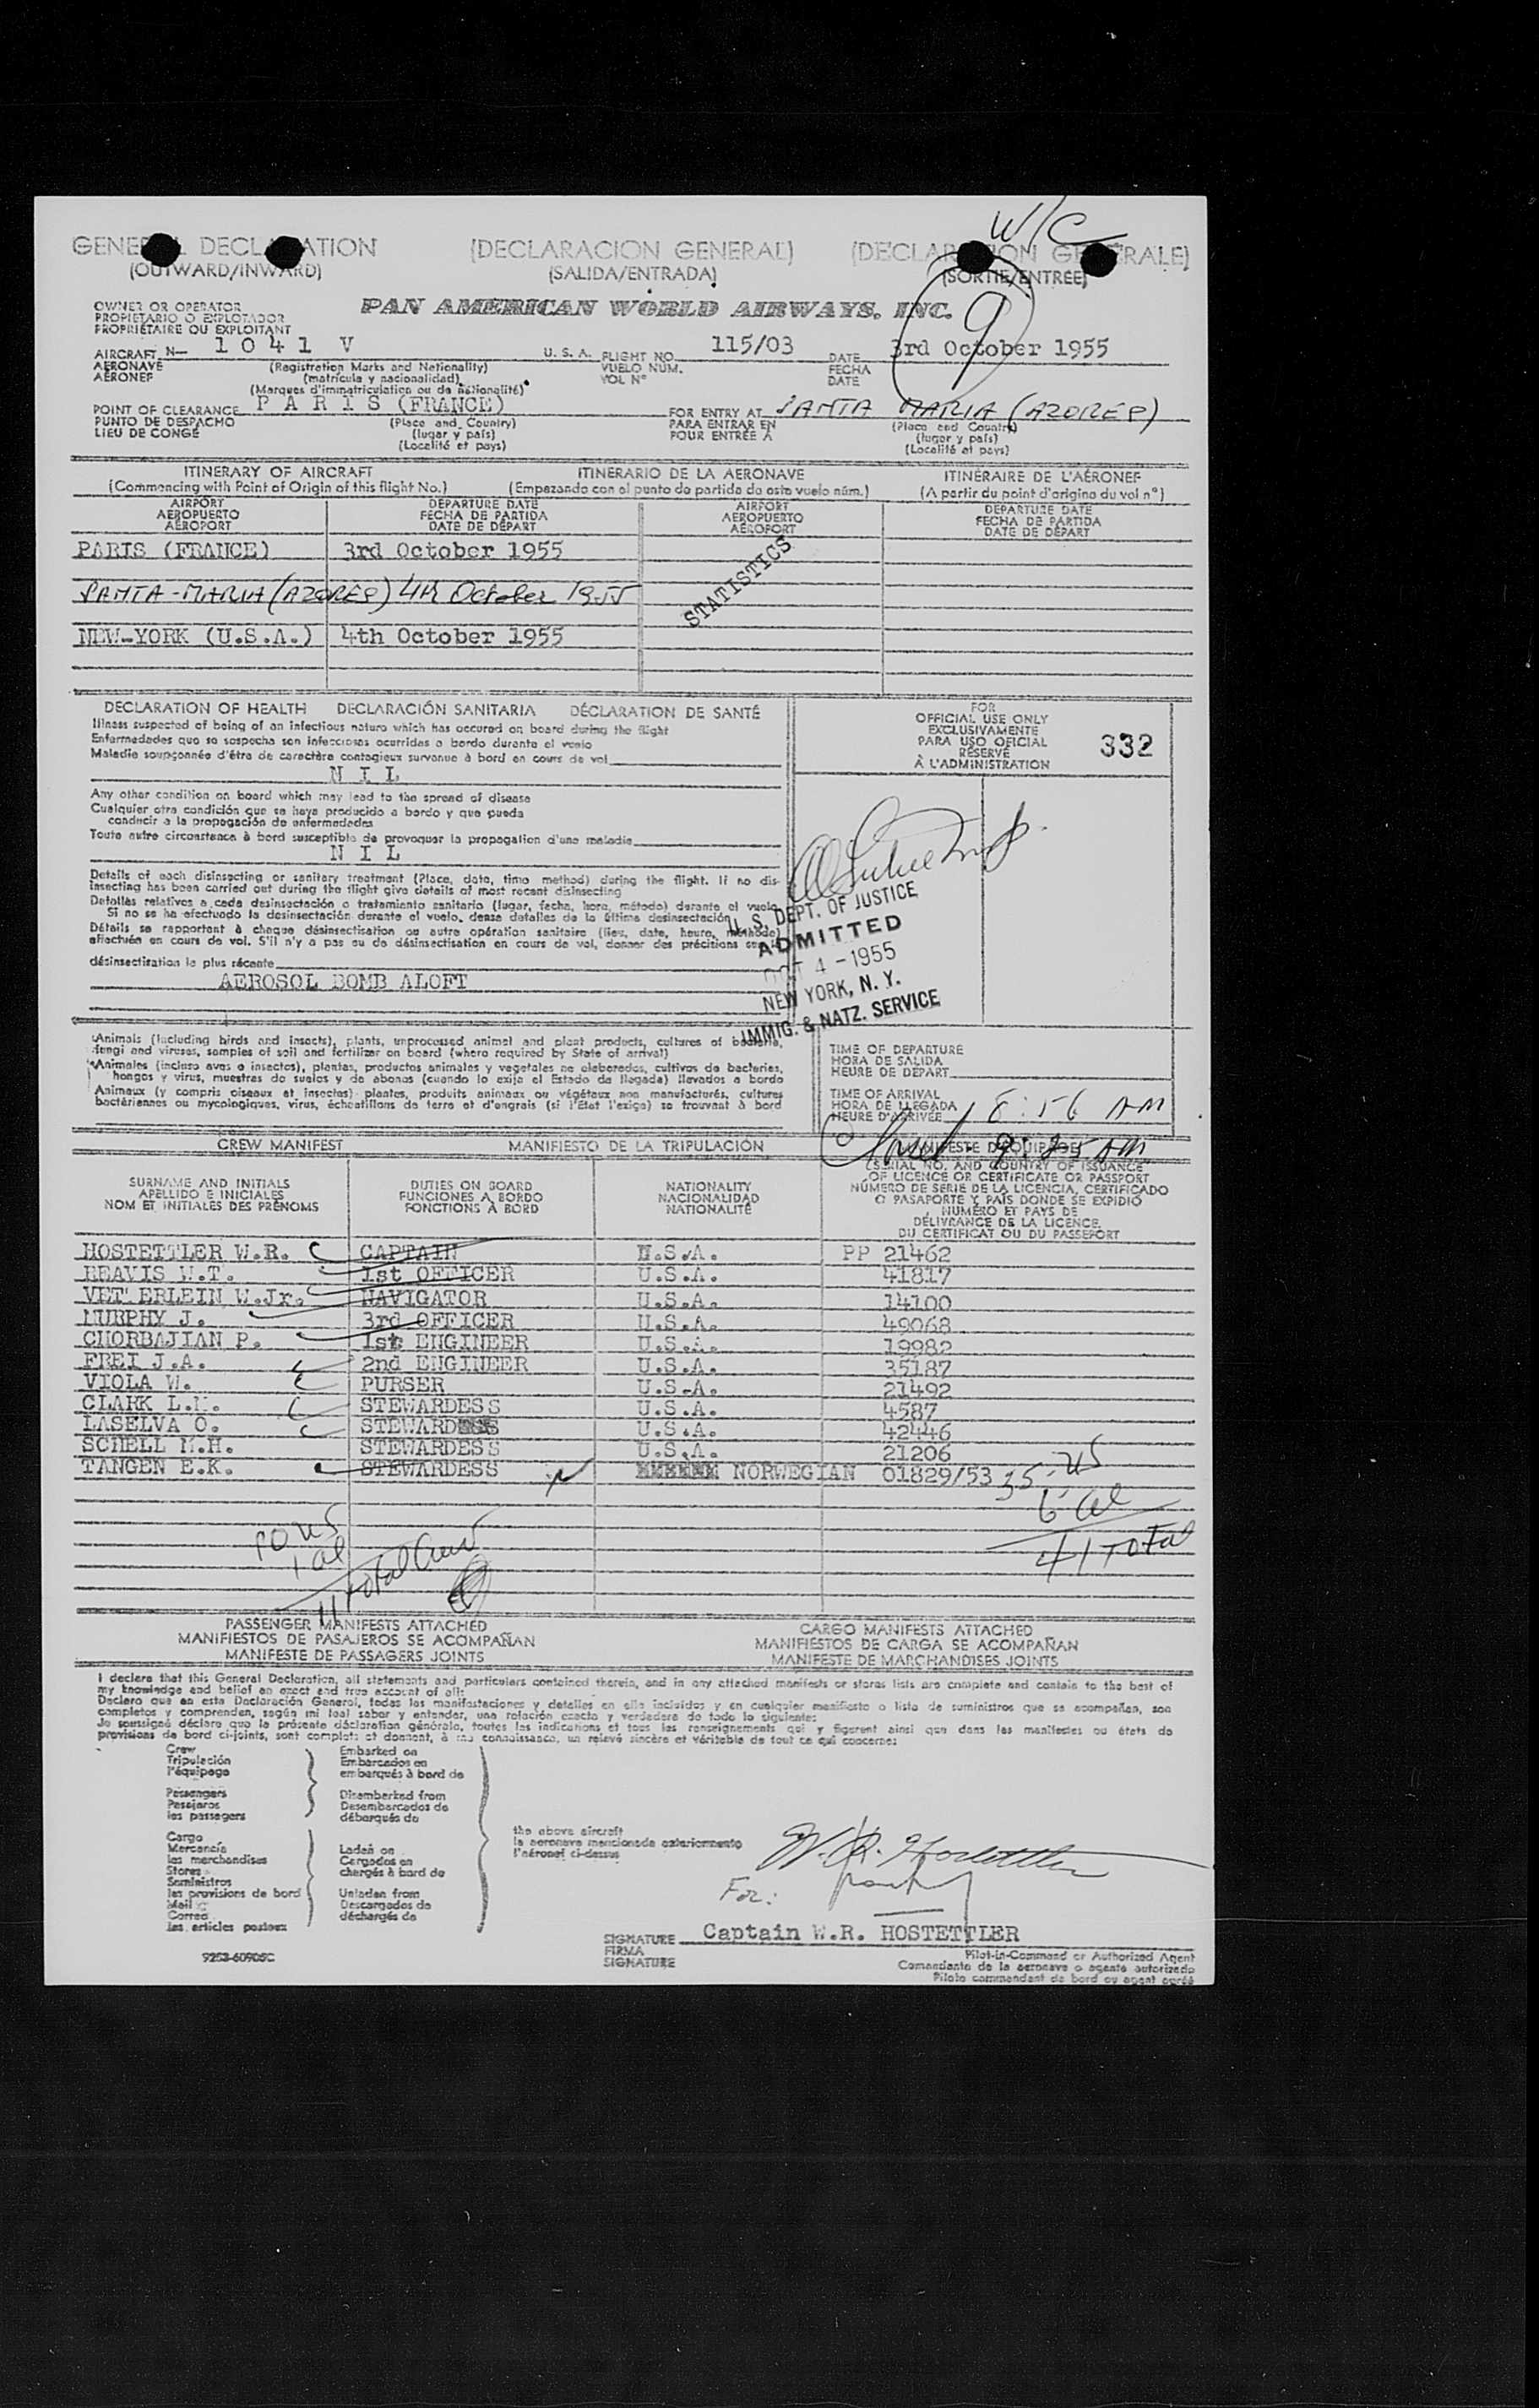 W/C
GENERAL DECLARATION (DECLARACION GENERAL) (DECLARATION GENERALE)
(OUTWARD/INWARD) (SALIDA/ENTRADA) (SORTIE/ENTREE)
9
OWNER OR OPERATOR
PROPIETARIO O EXPLOTADOR
PROPRIÉTAIRE OU EXPLOITANT
PAN AMERICAN WORLD AIRWAYS, INC.
AIRCRAFT N— 1 0 4 1 V U. S. A. FLIGHT NO. 115/03 DATE 3rd October 1955
AERONAVE (Registration Marks and Nationality) VUELO NUM. FECHA
AÉRONEF (matricula y nacionalidad) VOL Nº DATE
(Marques d'immatriculation ou de nationalité)
POINT OF CLEARANCE P A R I S (FRANCE) FOR ENTRY AT SANTA MARIA (AZORES)
PUNTO DE DESPACHO (Place and Country) PARA ENTRAR EN (Place and Country)
LIEU DE CONGÉ (lugar y país) POUR ENTRÉE A (lugar y país)
(Localité et pays) (Localité et pays)
ITINERARY OF AIRCRAFT ITINERARIO DE LA AERONAVE ITINÉRAIRE DE L'AÉRONEF
(Commencing with Point of Origin of this flight No.) (Empezando con el punto de partida de este vuelo núm.) (A partir du point d'origine du vol nº)
AIRPORT DEPARTURE DATE AIRPORT DEPARTURE DATE
AEROPUERTO FECHA DE PARTIDA AEROPUERTO FECHA DE PARTIDA
AÉROPORT DATE DE DÉPART AÉROPORT DATE DE DÉPART
PARIS (FRANCE) 3rd October 1955
STATISTICS
SANTA-MARIA (AZORES) 4th October 1955
NEW-YORK (U.S.A.) 4th October 1955
DECLARATION OF HEALTH DECLARACIÓN SANITARIA DÉCLARATION DE SANTÉ
Illness suspected of being of an infectious nature which has occured on board during the flight
Enfermedades que se sospecha son infecciosas ocurridas a bordo durante el vuelo
Maladie soupçonnée d'être de caractère contagieux survenue à bord en cours de vol
N I L
Any other condition on board which may lead to the spread of disease
Cualquier otra condición que se haya producido a bordo y que pueda
conducir a la propagación de enfermedades
Toute autre circonstance à bord susceptible de provoquer la propagation d'une maladie
N I L
Details of each disinsecting or sanitary treatment (Place, date, time method) during the flight. If no dis-
insecting has been carried out during the flight give details of most recent disinsecting
Detalles relativos a cada desinsectación o tratamiento sanitario (lugar, fecha, hora, método) durante el vuelo
Si no se ha efectuado la desinsectación durante el vuelo, dense detalles de la última desinsectación
Détails se rapportant à chaque désinsectisation ou autre opération sanitaire (lieu, date, heure, méthode)
effectuée en cours de vol. S'il n'y a pas eu de désinsectisation en cours de vol, donner des précisions sur la
désinsectisation la plus récente
AEROSOL BOMB ALOFT
FOR
OFFICIAL USE ONLY
EXCLUSIVAMENTE
PARA USO OFICIAL
RÉSERVÉ
À L'ADMINISTRATION
332
U. S. DEPT. OF JUSTICE
ADMITTED
OCT 4 - 1955
NEW YORK, N. Y.
IMMIG. & NATZ. SERVICE
Animals (including birds and insects), plants, unprocessed animal and plant products, cultures of bacteria,
fungi and viruses, samples of soil and fertilizer on board (where required by State of arrival)
Animales (incluso aves o insectos), plantas, productos animales y vegetales no elaborados, cultivos de bacterias,
hongos y virus, muestras de suelos y de abonos (cuando lo exija el Estado de llegada) llevados a bordo
Animaux (y compris oiseaux et insectes) plantes, produits animaux ou végétaux non manufacturés, cultures
bactériennes ou mycologiques, virus, échantillons de terre et d'engrais (si l'État l'exige) se trouvant à bord
TIME OF DEPARTURE
HORA DE SALIDA
HEURE DE DÉPART
TIME OF ARRIVAL
HORA DE LLEGADA
HEURE D'ARRIVÉE 8:56 AM
9:25 AM
CREW MANIFEST MANIFIESTO DE LA TRIPULACIÓN MANIFESTE D'ÉQUIPAGE
SURNAME AND INITIALS
APELLIDO E INICIALES
NOM ET INITIALES DES PRÉNOMS
DUTIES ON BOARD
FUNCIONES A BORDO
FONCTIONS À BORD
NATIONALITY
NACIONALIDAD
NATIONALITÉ
SERIAL NO. AND COUNTRY OF ISSUANCE
OF LICENCE OR CERTIFICATE OR PASSPORT
NÚMERO DE SERIE DE LA LICENCIA, CERTIFICADO
O PASAPORTE Y PAÍS DONDE SE EXPIDIÓ
NUMÉRO ET PAYS DE
DÉLIVRANCE DE LA LICENCE,
DU CERTIFICAT OU DU PASSEPORT
HOSTETTLER W.R. CAPTAIN U.S.A. PP 21462
REAVIS W.T. 1st OFFICER U.S.A. 41817
VETTERLEIN W.Jr. NAVIGATOR U.S.A. 14100
MURPHY J. 3rd OFFICER U.S.A. 49068
CHORBAJIAN P. 1st ENGINEER U.S.A. 19982
FREI J.A. 2nd ENGINEER U.S.A. 35187
VIOLA W. PURSER U.S.A. 21492
CLARK L.M. STEWARDESS U.S.A. 4587
LASELVA O. STEWARD U.S.A. 42446
SCHELL M.H. STEWARDESS U.S.A. 21206
TANGEN E.K. STEWARDESS NORWEGIAN 01829/53
35-US
6-al
41 Total
10 US
1 al
11 total Crew
PASSENGER MANIFESTS ATTACHED CARGO MANIFESTS ATTACHED
MANIFIESTOS DE PASAJEROS SE ACOMPAÑAN MANIFIESTOS DE CARGA SE ACOMPAÑAN
MANIFESTE DE PASSAGERS JOINTS MANIFESTE DE MARCHANDISES JOINTS
I declare that this General Declaration, all statements and particulars contained therein, and in any attached manifests or stores lists are complete and contain to the best of
my knowledge and belief an exact and true account of all:
Declaro que en esta Declaración General, todas las manifestaciones y detalles en ella incluidos y en cualquier manifiesto o lista de suministros que se acompañan, son
completos y comprenden, según mi leal saber y entender, una relación exacta y verdadera de todo lo siguiente:
Je soussigné déclare que la présente déclaration générale, toutes les indications et tous les renseignements qui y figurent ainsi que dans les manifestes ou états de
provisions de bord ci-joints, sont complets et donnent, à ma connaissance, un relevé sincère et véritable de tout ce qui concerne:
Crew Embarked on
Tripulación Embarcados en
l'équipage embarqués à bord de
Passengers Disembarked from
Pasajeros Desembarcados de
les passagers débarqués de
Cargo
Mercancía Laden on
les marchandises Cargados en
Stores chargés à bord de
Suministros
les provisions de bord Unladen from
Mail Descargados de
Correo déchargés de
les articles postaux
the above aircraft
la aeronave mencionada anteriormente
l'aéronef ci-dessus
W. R. Hostettler
For:
SIGNATURE Captain W.R. HOSTETTLER
FIRMA
SIGNATURE
Pilot-in-Command or Authorized Agent
Comandante de la aeronave o agente autorizado
Pilote commandant de bord ou agent agréé
9253-60905C